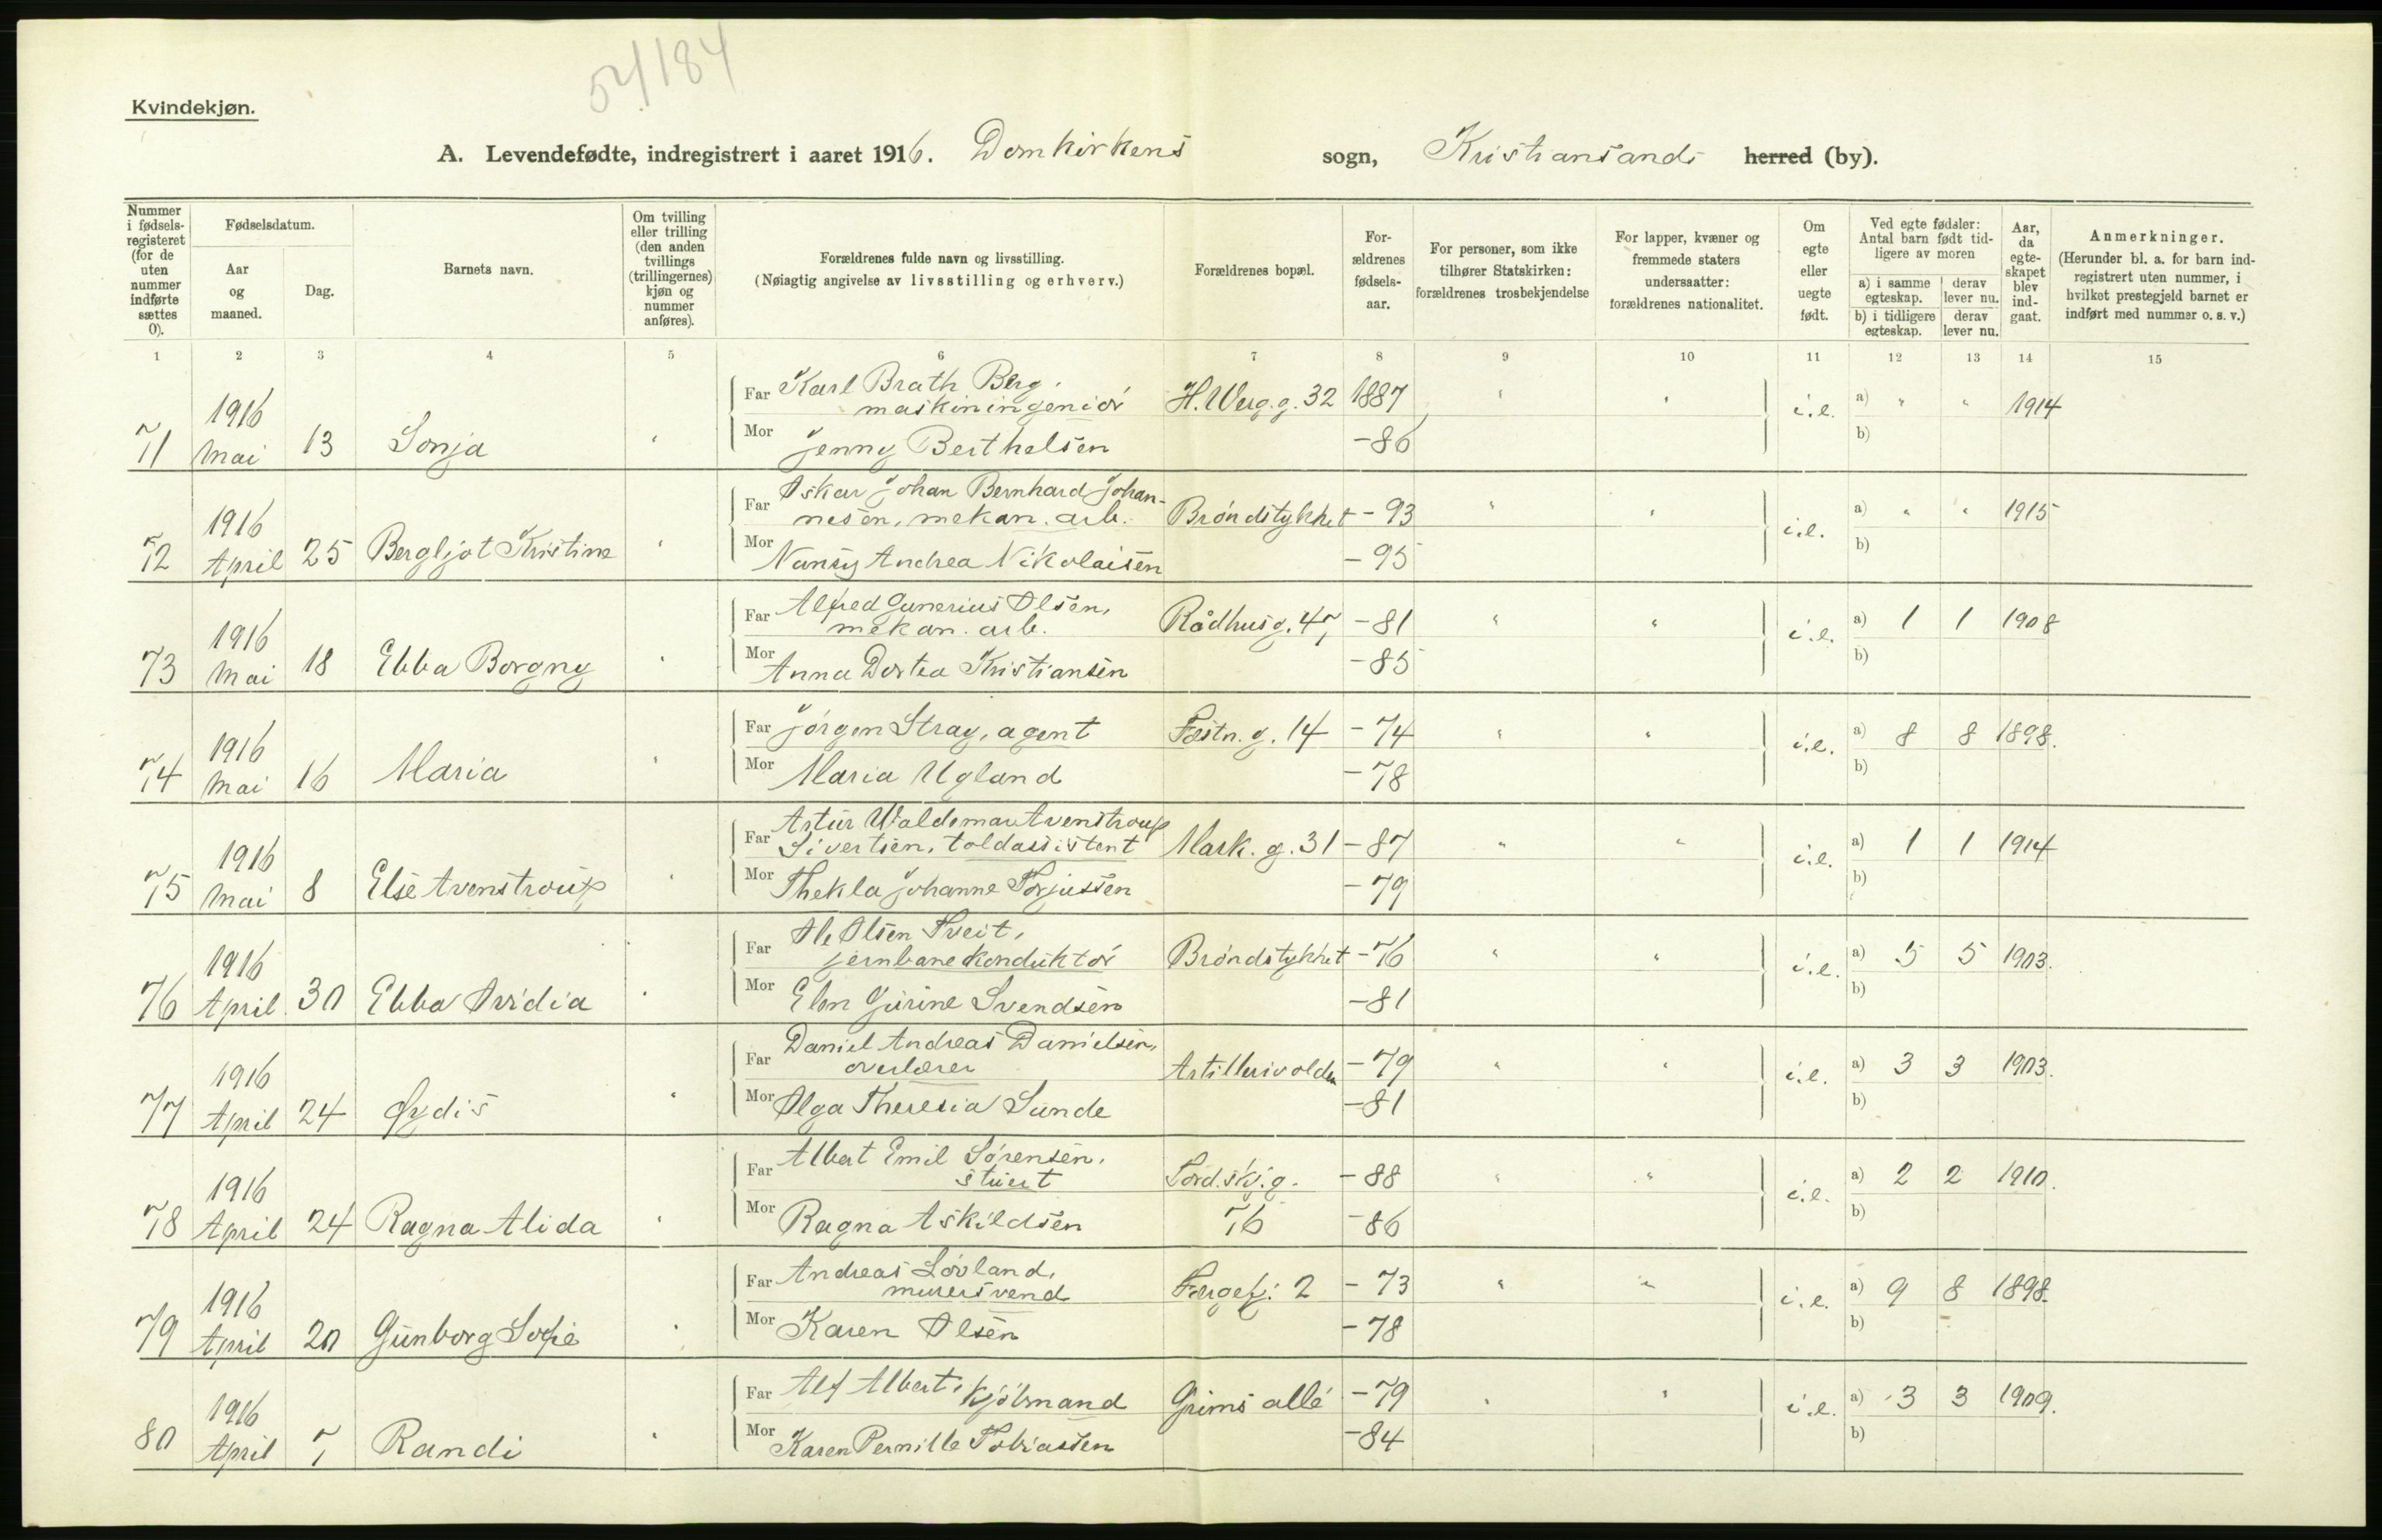 54/184
Kvindekjøn.
A. Levendefødte, indregistrert i aaret 1916. Domkirkens sogn, Kristiansands herred (by).
Nummer i fødselsregisteret (for de uten nummer indførte sættes 0).
Fødselsdatum.
Aar og maaned.
Dag.
Barnets navn.
Om tvilling eller trilling (den anden tvillings (trillingernes) kjøn og nummer anføres).
Forældrenes fulde navn og livsstilling.
(Nøiagtig angivelse av livsstilling og erhverv.)
Forældrenes bopæl.
Forældrenes fødselsaar.
For personer, som ikke tilhører Statskirken: forældrenes trosbekjendelse
For lapper, kvæner og fremmede staters undersaatter: forældrenes nationalitet.
Om egte eller uegte født.
Ved egte fødsler: Antal barn født tidligere av moren
a) i samme egteskap.
derav lever nu.
b) i tidligere egteskap.
derav lever nu.
Aar, da egteskapet blev indgaat.
Anmerkninger.
(Herunder bl. a. for barn indregistrert uten nummer, i hvilket prestegjeld barnet er indført med nummer o. s. v.)
1 2 3 4 5 6 7 8 9 10 11 12 13 14 15
Far Karl Brath Berg,
maskiningeniør H. Werg. g. 32 1887 " " i.e. a) " " 1914
71 1916 Mai 13 Sonja " Mor Jenny Berthelsen -86 b)
Far Oskar Johan Bernhard Johan-
nesen, mekan. arb. Brøndstykket -93 " " i.e. a) " " 1915
72 1916 April 25 Bergljot Kristine " Mor Nansy Andrea Nikolaisen -95 b)
Far Alfred Gunerius Olsen,
mekan. arb. Rådhusg. 47, -81 " " i.e. a) 1 1 1908
73 1916 Mai 18 Ebba Borgny " Mor Anna Dortea Kristiansen -85 b)
Far Jørgen Stray, agent Festn. g. 14 -74 " " i.e. a) 8 8 1898.
74 1916 Mai 16 Maria " Mor Maria Ugland -78 b)
Far Artur Waldemar Avenstroup
Sivertsen, toldassistent Mark. g. 31 -87 " " i.e. a) 1 1 1914
75 1916 Mai 8 Else Avenstroup " Mor Thekla Johanne Torjussen -79 b)
Far Ole Olsen Tveit,
jernbanekonduktør Brøndstykket -76 " " i.e. a) 5 5 1903.
76 1916 April 30 Ebba Ovidia " Mor Elen Gurine Svendsen -81 b)
Far Daniel Andreas Danielsen,
overlærer Artillerivolden -79 " " i.e. a) 3 3 1903.
77 1916 April 24 Øydis " Mor Olga Theresia Sunde -81 b)
Far Albert Emil Sørensen,
stuert Tord.skj.g. -88 " " i.e. a) 2 2 1910.
78 1916 April 24 Ragna Alida " Mor Ragna Askildsen 76 -86 b)
Far Andreas Løvland,
murersvend Fergef: 2 -73 " " i.e. a) 9 8 1898.
79 1916 April 20 Gunborg Sofie " Mor Karen Olsen -78 b)
Far Alf Albert, Kjølmand Grims allé -79 " " i.e. a) 3 3 1909.
80 1916 April 7 Randi " Mor Karen Pernille Tobiassen -84 b)